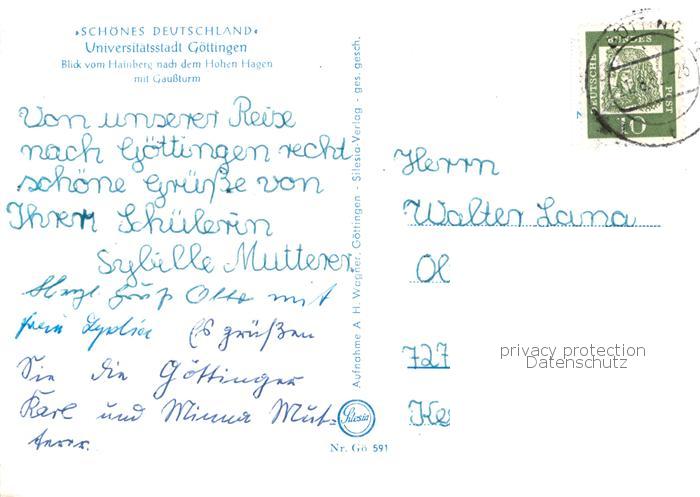 »SCHÖNES DEUTSCHLAND«
Universitätsstadt Göttingen
Blick vom Hainberg nach dem Hohen Hagen
mit Gaußturm
Von unserer Reise
nach Göttingen recht
schöne Grüße von
Ihrer Schülerin
Sybille Mutterer.
Herzl. Gruß Otto mit
Frau Lydia Es grüßen
Sie die Göttinger
Karl und Minna Mut-
terer.
Aufnahme A H. Wagner, Göttingen - Silesia-Verlag - ges. gesch.
Silesia
Nr. Gö 591
DEUTSCHE
BUNDES
POST
10
Herrn
Walter Lana
Ol
727
Ke
privacy protection
Datenschutz